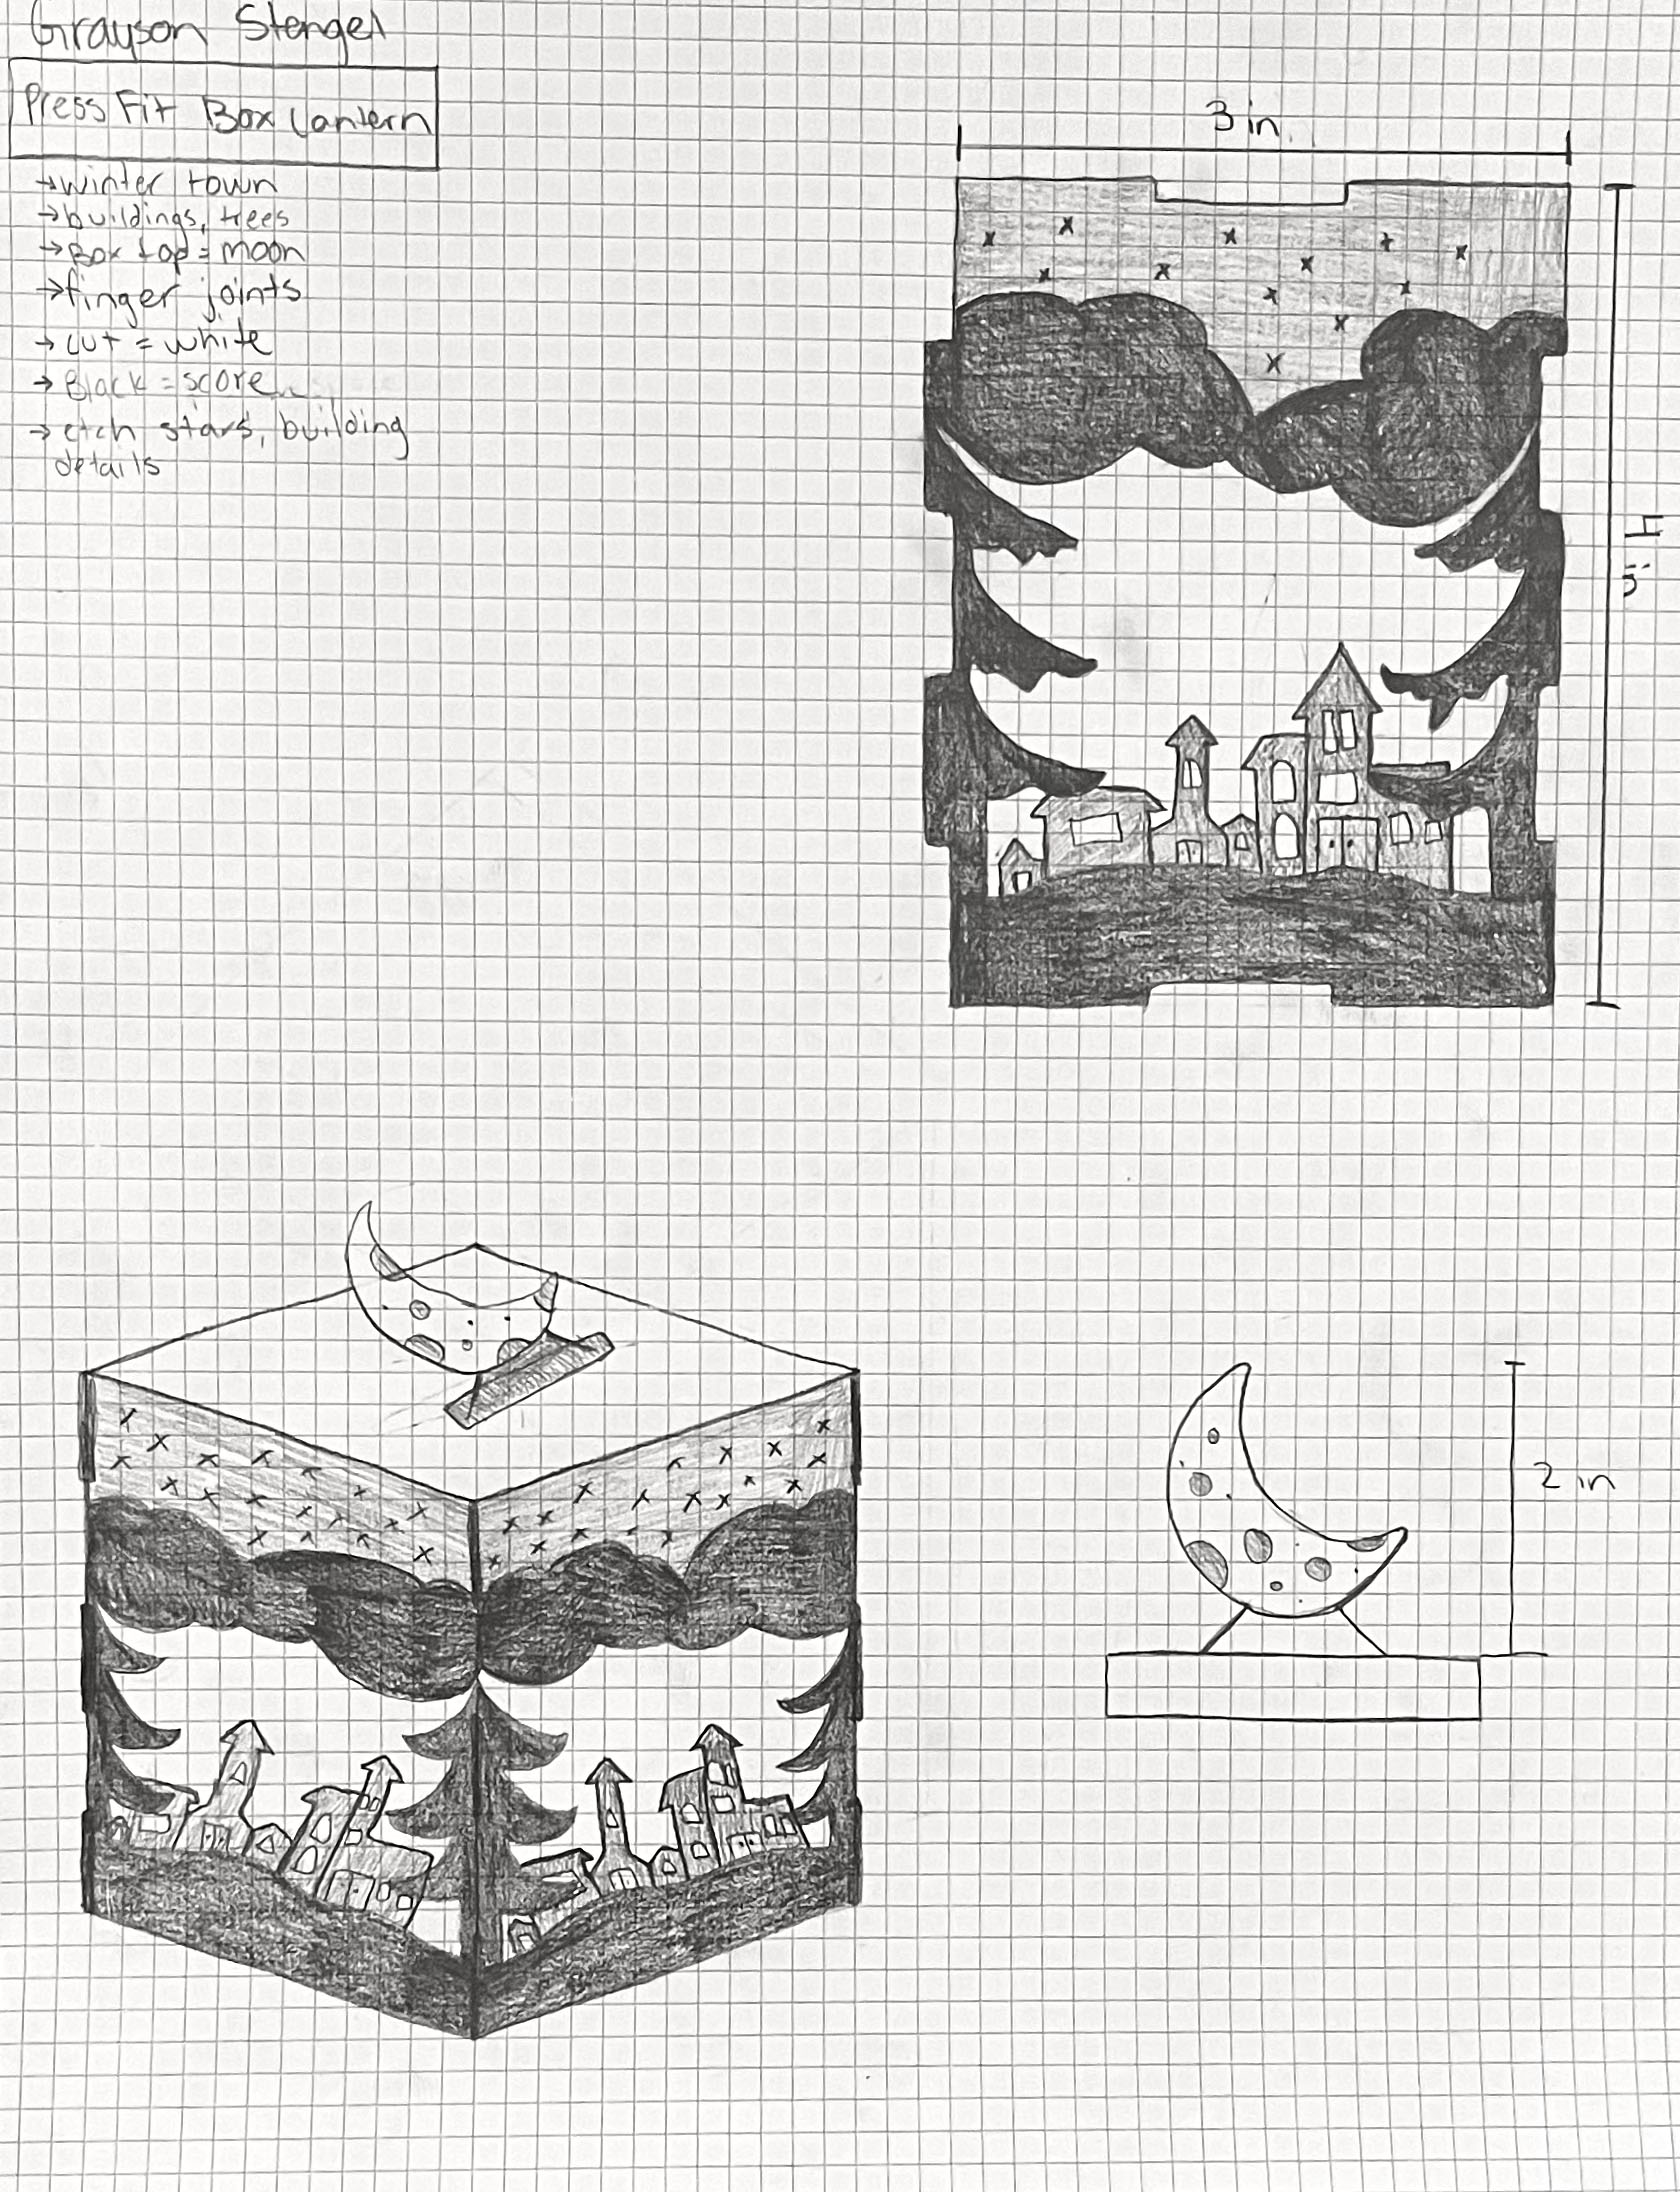 Grayson Stengel
Press Fit Box Lantern
→ winter town
→ buildings, trees
→ Box top = moon
→ finger joints
→ cut = white
→ Black = score
→ etch stars, building
details
3 in.
2 in